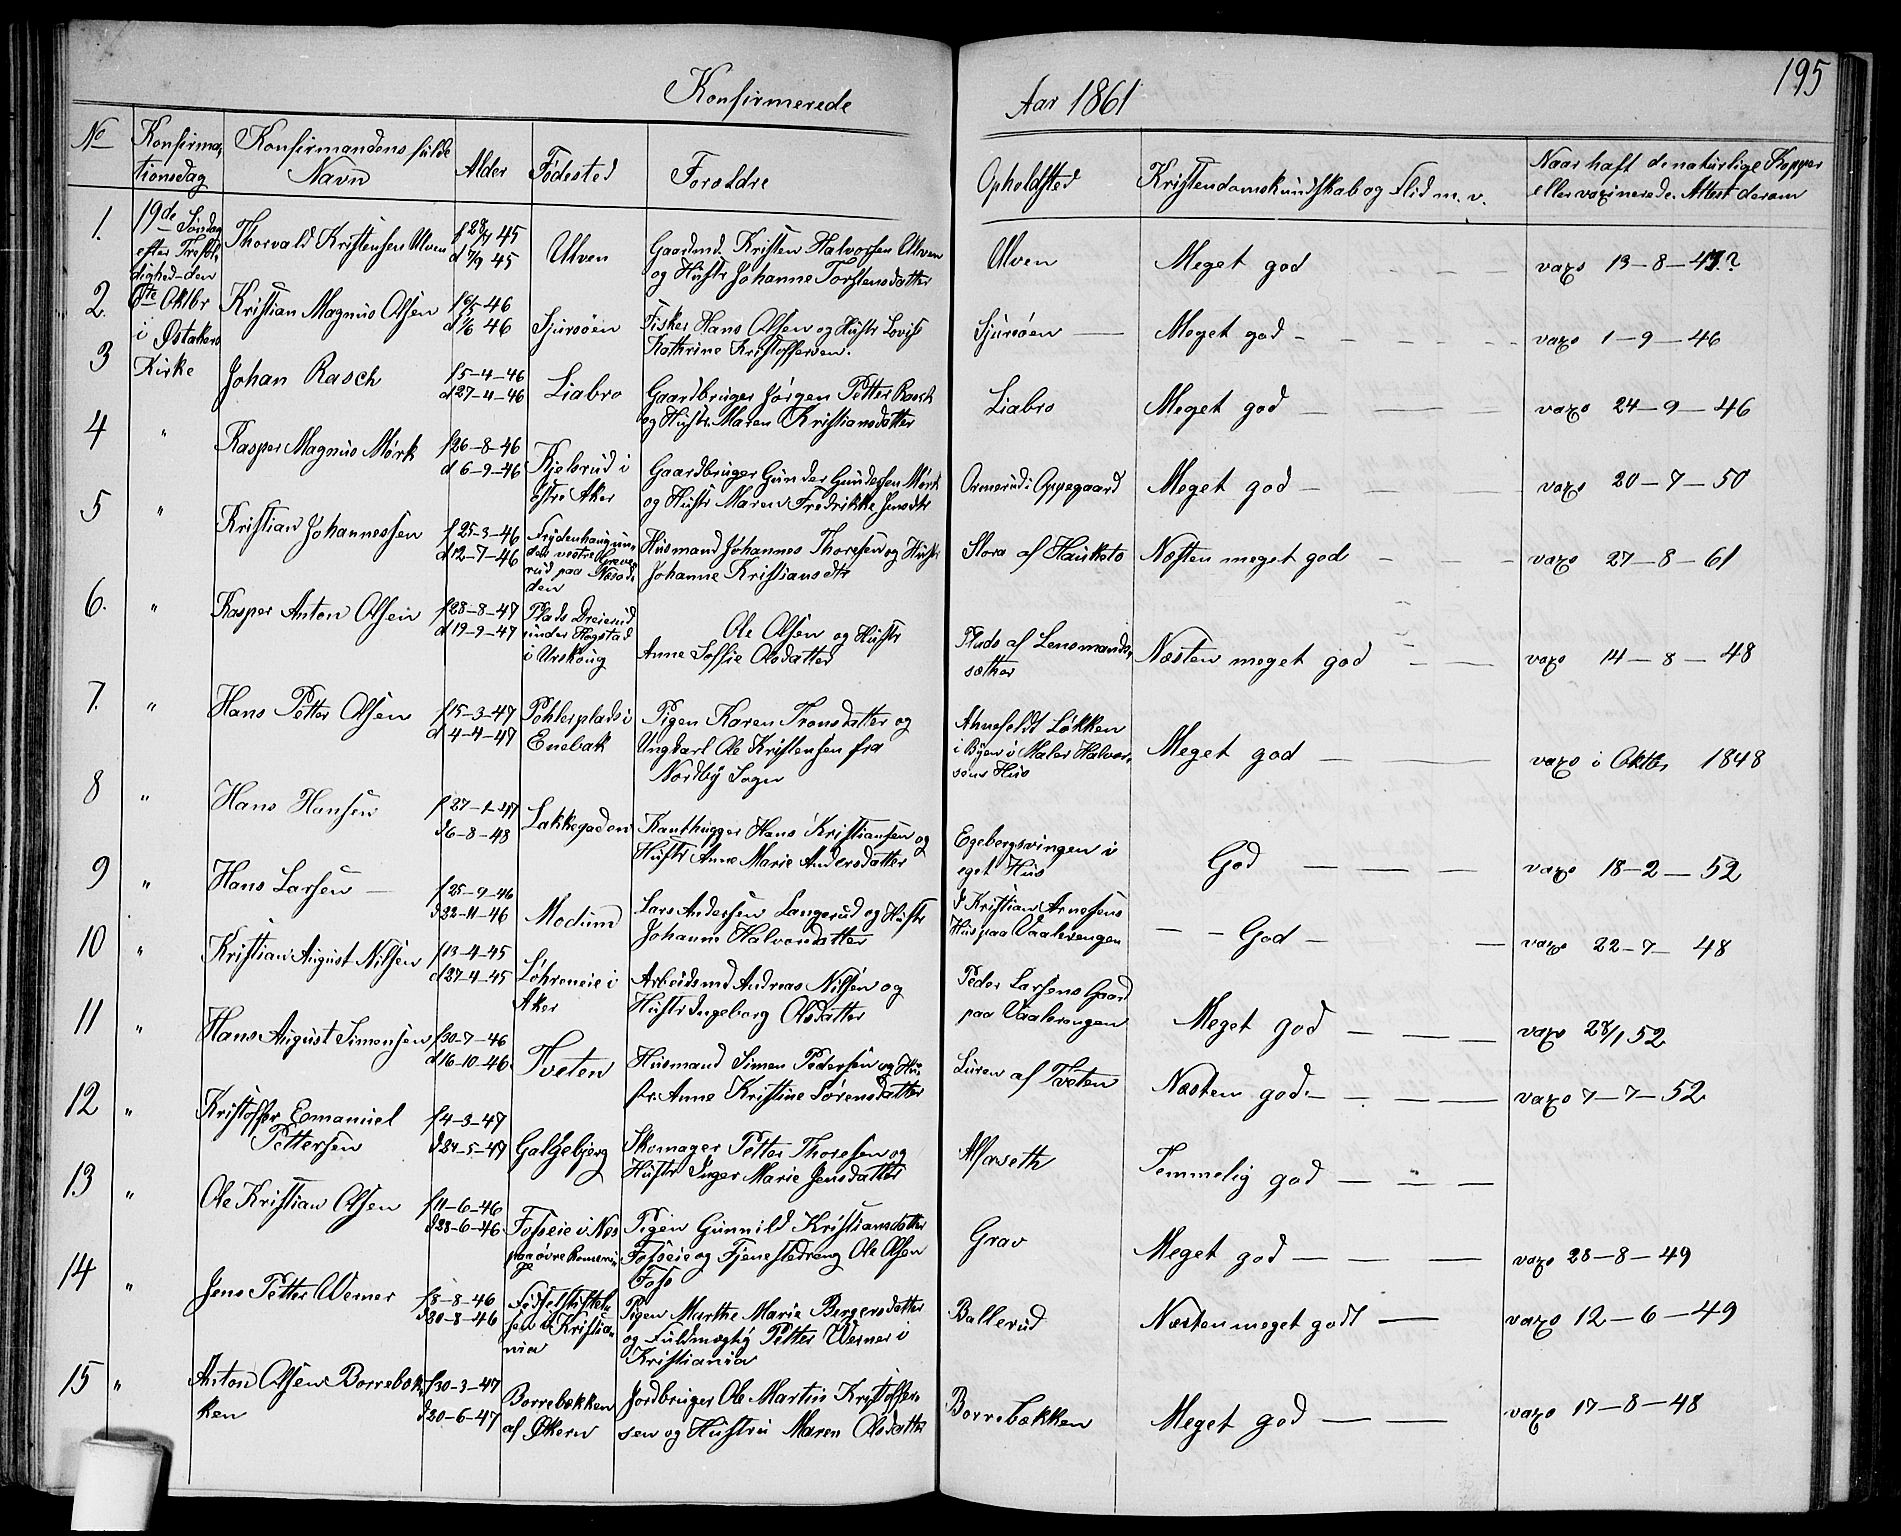 195
Konfirmerede
Aar 1861
No
Konfirma,
tionsdag
Konfirmandens fulde
Navn
Alder
Fødested
Foreldre
Opholdsted
Kristendomskundskab og Flid m. v.
Naar haft de naturlige Kopper
eller vaxinerede. Attest derom
1.
19de Søndag
efter Trefol,
dighed den
6te Oktbr
i Østakers
Kirke
Thorvald Kristensen Ulven
45
45
Ulven
Gaardmd. Kristen Halvorsen Ulven
og Hustr Johanne Torstensdatter
Ulven
Meget god
vaxs 13-8-47?
2.
Kristian Magnus Olsen
46
46
Sjursøen
Fisker Hans Olsen og Hustr Lovise
Kathrine Kristoffersen.
Sjursøen
Meget god
vaxs 1-9-46
3
Johan Rasch
f 5-4-46
d 27-4-46
Liabro
Gaardbruger Jørgen Petter Rasch
og Hustr. Maren Kristiansdatter
Liabro
Meget god
vaxs 24-9-46
4
"
Kasper Magnus Mørk
f 26-8-46
d 6-9-46
Kjelsrud i
østre Aker
Gaardbruger Gunder Gundersen Mørk
og Hustr Maren Fredrikke Jensdtr
Ormerud i Oppegaard
Meget god
vaxs 20-7-50
5
"
Kristian Johannessen
f 25-3-46
d 12-7-46
Frydenhaug un-
der vestre Greve-
rud paa Næsod-
den
Husmand Johannes Thoresen og Hustr
Johanne Kristiansdtr
Stora af Hauketo
Næsten meget god
vaxs 27-8-61
6.
"
Kasper Anton Olsen
f 28-8-47
d 19-9-47
Plads Dreierud
under Hogstad
i Urskoug
Ole Olsen og Hustr
Anne Soffie Olsdatter
Plads af Lensmands,
sæther
Næsten meget god
vaxs 14-8-48
7.
"
Hans Petter Olsen
f 15-3-47
d 4-4-47
Pohlerplads i
Enebak
Pigen Karen Tronsdatter og
Ungkarl Ole Kristensen fra
Nordby Sogn
Ahnefeldt Løkken
i Byen i Maler Halvor,
sens Hus
Meget god
vaxs i Oktbr 1848
8
"
Hans Hansen
f 27-1-47
d 6-8-48
Lakkegaden
Kanthugger Hans Kristiansen og
Hustr Anne Marie Andersdatter
Egebergsvingen i
eget Hus
God
vaxs 18-2-52
9
"
Hans Larsen
f 25-9-46
d 22-11-46
Modum
Lars Andersen Langerud og Hustr
Johanne Halvorsdatter
I Kristian Arnesens
Hus paa Vaalerengen
God
vaxs 22-7-48
10
"
Kristian August Nilsen
f 13-4-45
d 27-4-45
Løhreneie i
Aker
Arbeidsmd Andreas Nilsen og
Hustr Ingeborg Olsdatter
Peder Larsens Gaard
paa Vaalerengen
Meget god
vaxs 28/1 52
11
"
Hans August Simensen
f 30-7-46
d 16-10-46
Tveten
Husmand Simen Pedersen og Hu
str. Anne Kristine Sørensdatter
Luren af Tveten
Næsten god
vaxs 7-7-52
12
"
Kristoffer Emanuel
Pettersen
f 4-3-47
d 24-5-47
Galgebjerg
Skomager Petter Thoresen og
Hustr Inger Marie Jensdatter
Alfaseth
Temmelig god
13
"
Ole Kristian Olsen
f 11-6-46
d 28-6-46
Fosseie i Næs
paa øvre Romeri-
ge
Pigen Gunnild Kristiansdatter
Fosseie og Tjenestedreng Ole Olsen
Foss
Grav
Meget god
vaxs 28-8-49
14
"
Jens Petter Werner
f 8-8-46
d 30-8-46
Fødselsstiftel-
sen i Kristia-
nia
Pigen Marthe Marie Bergersdatter
og Fuldmægtig Petter Werner i
Kristiania
Ballerud
Næsten meget godt
vaxs 12-6-49
15
"
Anton Olsen Borrebæk-
ken
f 30-3-47
d 20-6-47
Borrebækken
af Økern
Jordbruger Ole Martin Kristoffer
sen og Hustru Maren Olsdatter
Borrebækken
Meget god
vaxs 17-8-48